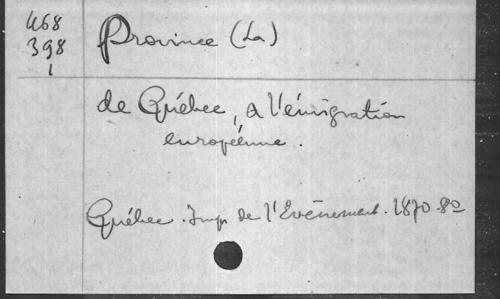 468
398
1
Province (La)
de Québec, a l'émigration
européenne.
Québec. Imp. de l'Evènement. 1870. 8º